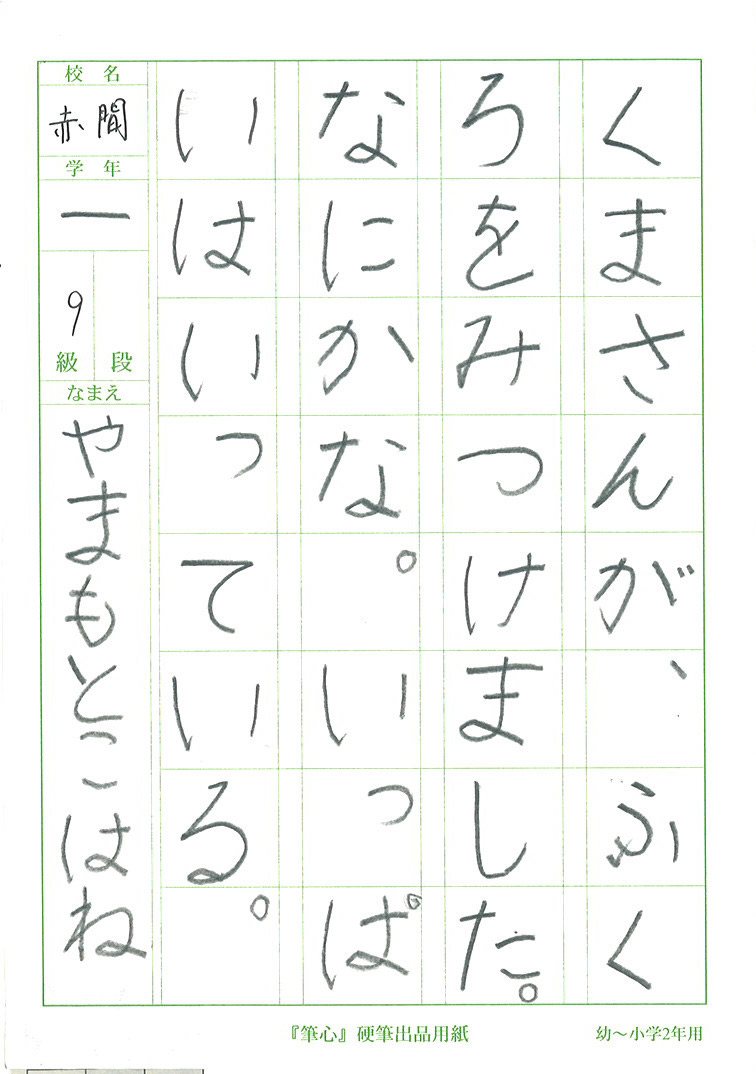 くまさんが、ふく
ろをみつけました。
なにかな。いっぱ
いはいっている。
校名
赤間
学年
一
9
級 段
なまえ
やまもとこはね
『筆心』硬筆出品用紙
幼〜小学2年用